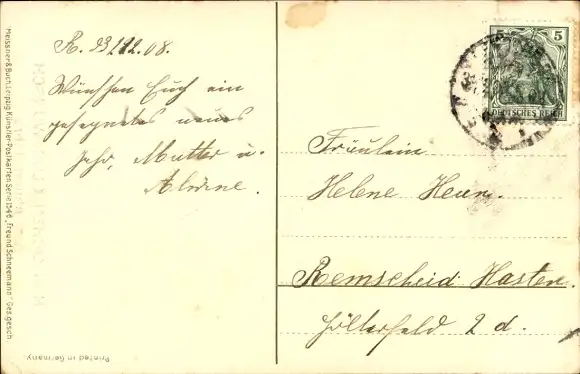 R. 23/12.08.
Wünschen Euch ein
gesegnetes neues
Jahr, Mutter u.
Alwine.
5
DEUTSCHES REICH
Fräulein
Helene Heun.
Remscheid-Hasten.
Hölterfeld 2 d.
Meissner & Buch, Leipzig. Künstler-Postkarten Serie 1544 „Freund Schneemann" Ges. gesch.
Printed in Germany.